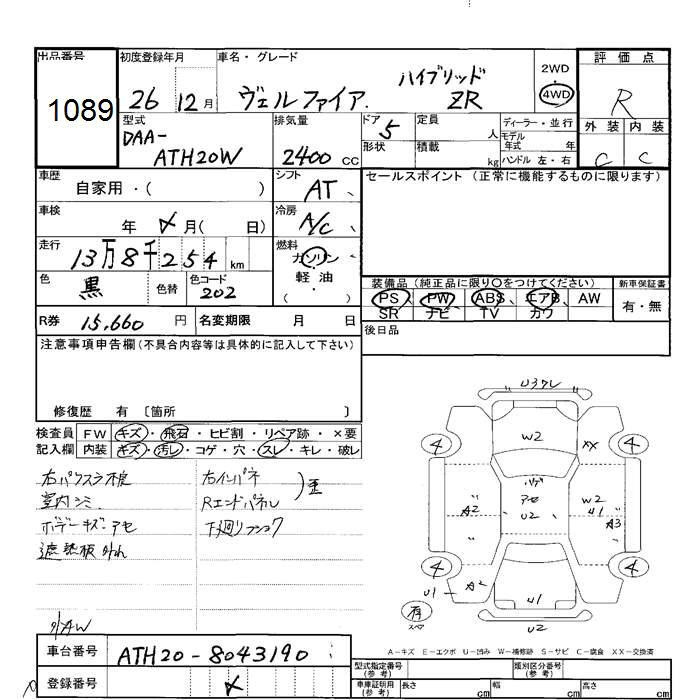 出品番号
1089
初度登録年月
26 12月
車名・グレード
ヴェルファイア ハイブリッド ZR
2WD
4WD
評価点
R
外装 内装
C C
型式
DAA-
ATH20W
排気量
2400 CC
ドア 5
形状
定員 人
積載 kg
ディーラー・並行
モデル年式 年
ハンドル 左・右
車歴
自家用・( )
シフト
AT
セールスポイント (正常に機能するものに限ります)
車検
年 月( 日)
冷房
A/C
走行
13万8千254 km
燃料
ガソリン
軽油
( ・ )
色
黒
色替
色コード
202
装備品 (純正品に限り○をつけてください)
PS PW ABS エアB AW
SR ナビ TV カワ
新車保証書
有・無
R券 15,660 円
名変期限 月 日
後日品
注意事項申告欄(不具合内容等は具体的に記入して下さい)
修復歴 有 〔箇所 〕
検査員
記入欄
FW キズ・飛石・ヒビ割・リペア跡・×要
内装 キズ・汚レ・コゲ・穴・スレ・キレ・破レ
室内シミ
ボデーキズ・アセ
遮熱板外れ
右インパネ
Rエンドパネル
歪
外AW
U3ワレ
W2
XX
4 4
ハゲ
アセ
U2
A2
W2
U1
A3
4 4
A2
U1
U1
U2
有
スペア
A−キズ E−エクボ U−凹み W−補修跡 S−サビ C−腐食 XX−交換済
車台番号 ATH20-8043190
登録番号
型式指定番号
(参考)
類別区分番号
(参考)
車庫証明用
(参考)
長さ cm
幅 cm
高さ cm